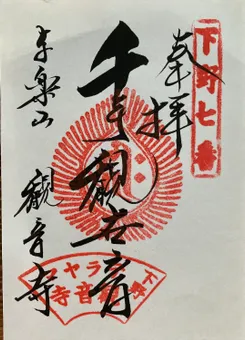 下野七番
奉拝
千手観世音
幸楽山
観音寺
下野
観音寺